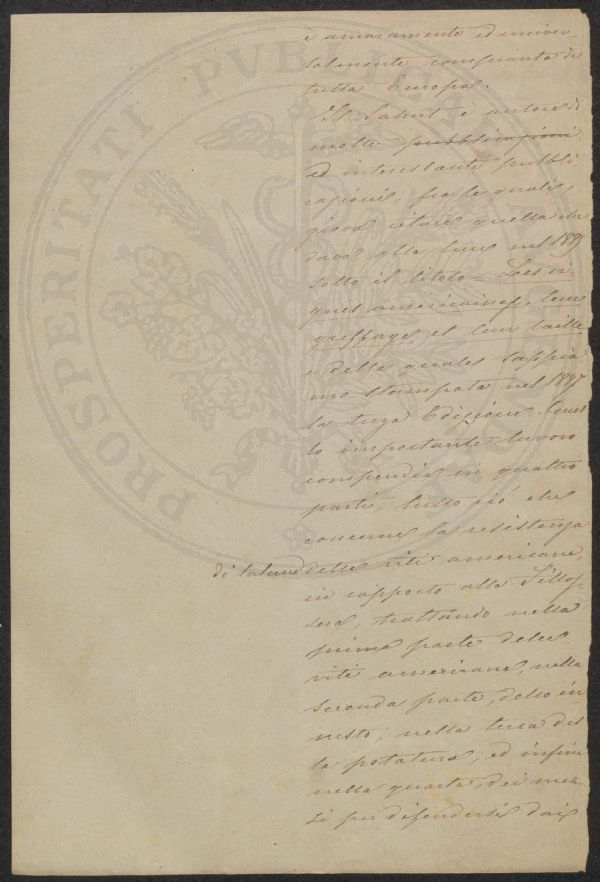 è amaramente ed univer-
salmente compianta da
tutta Europa.
Il Sahut, è autore di
molte pubblicazioni
ed interessanti pubbli
cazioni, fra le quali,
giova citare quella da
dava alla luce nel 1885
sotto il titolo = Les vi-
gnes americaines, leur
greffage, et leur taille
e della quale sappia
mo stampata nel 1887
la terza Edizione. Ques
to importante lavoro
compendia in quattro
parti, tutto ciò che
concerne la resistenza
di talune delle viti americane,
in rapporto alla Fillos-
sera, trattando nella
prima parte delle
viti americane, nella
seconda parte, dello in-
nesto; nella terza del
la potatura, ed infine
nella quarta, dei mez-
zi per difendersi dai
PROSPERITATI PVBLICAE